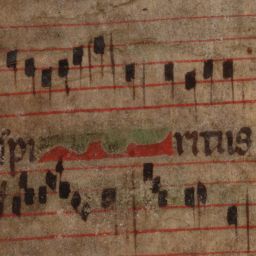 spi ritus